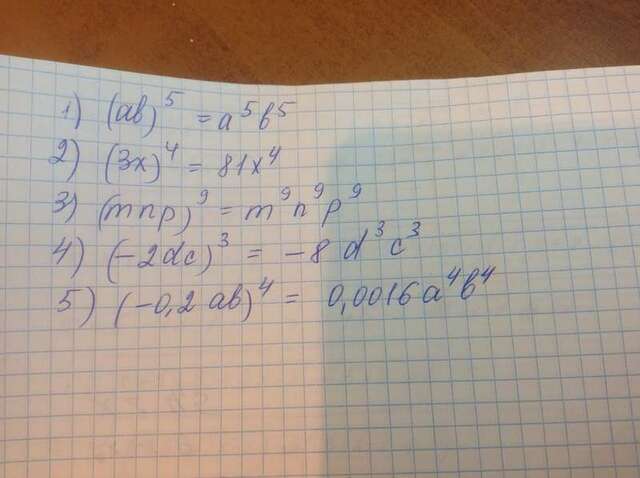 1) (ab)⁵ = a⁵b⁵
2) (3x)⁴ = 81x⁴
3) (mnp)⁹ = m⁹n⁹p⁹
4) (-2dc)³ = -8 d³c³
5) (-0,2 ab)⁴ = 0,0016a⁴b⁴